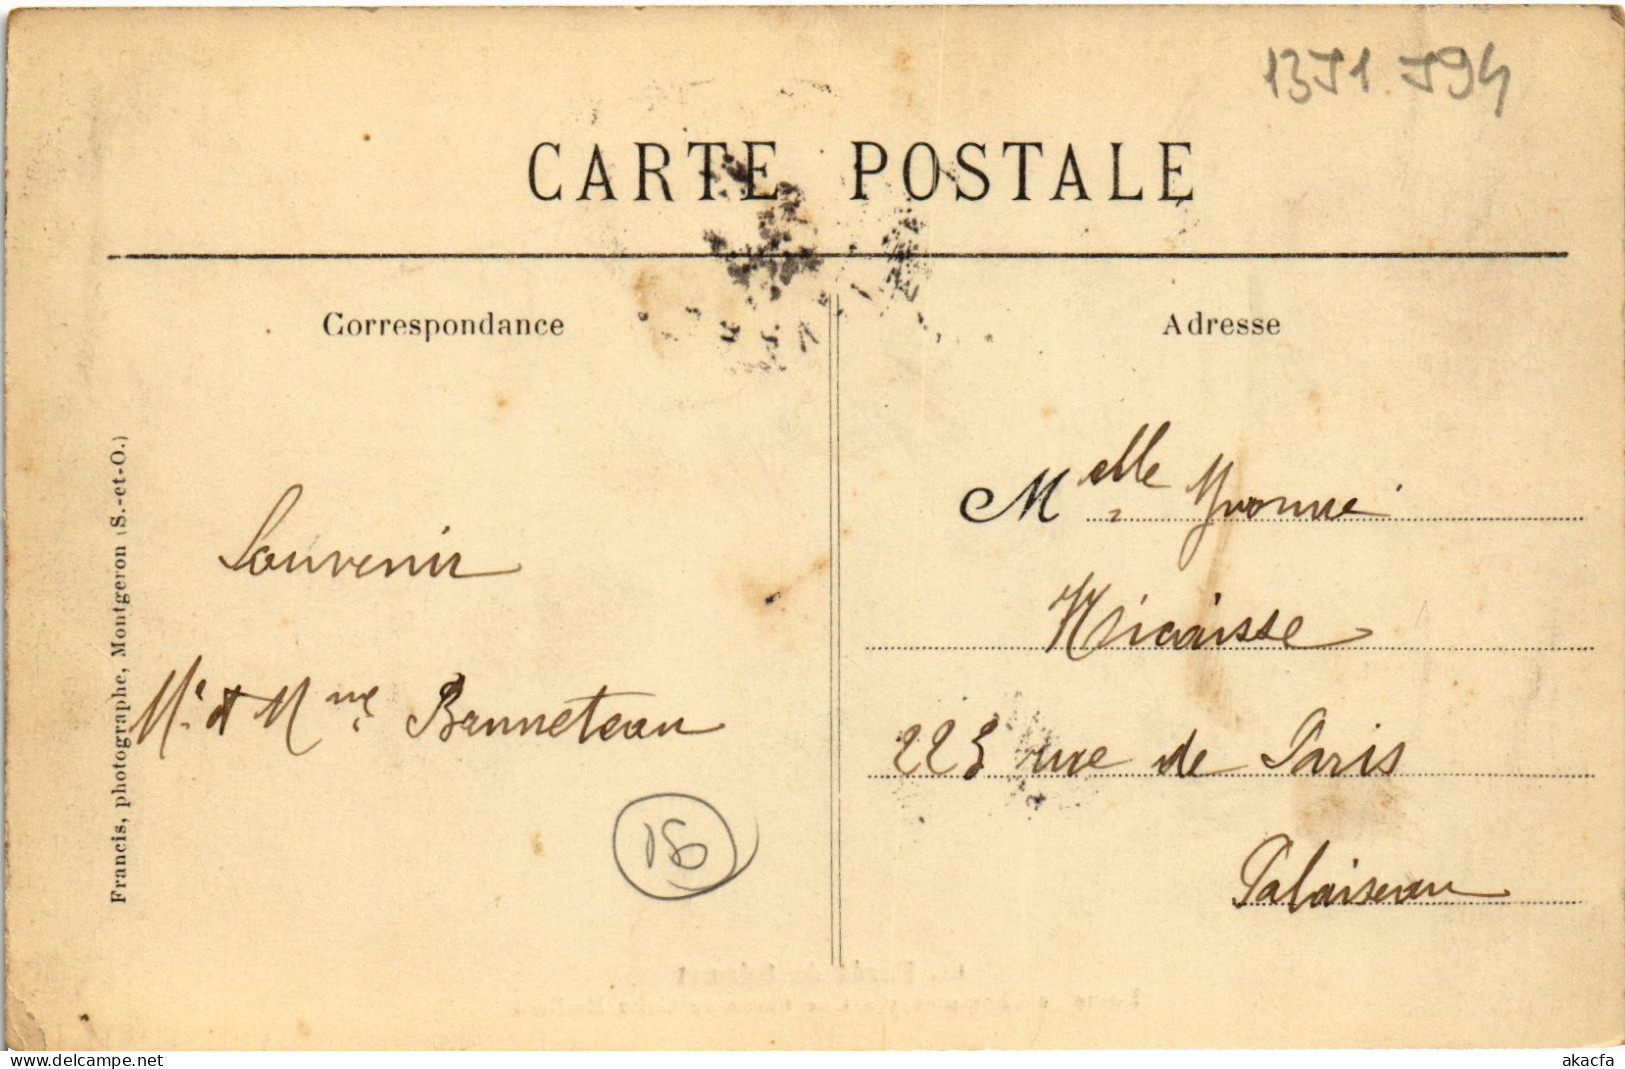 13J1 J94
CARTE POSTALE
Correspondance
Adresse
Francis, photographe, Montgeron (S.-et-O.)
Souvenir
Mr et Mme Banneteau
18
Melle Yvonne
Nicaisse
223 rue de Paris
Palaiseau
www.delcampe.net
akacfa